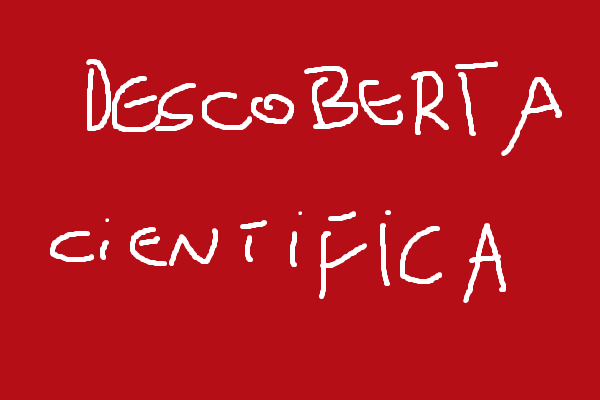 DESCOBERTA
CiENTiFiCA